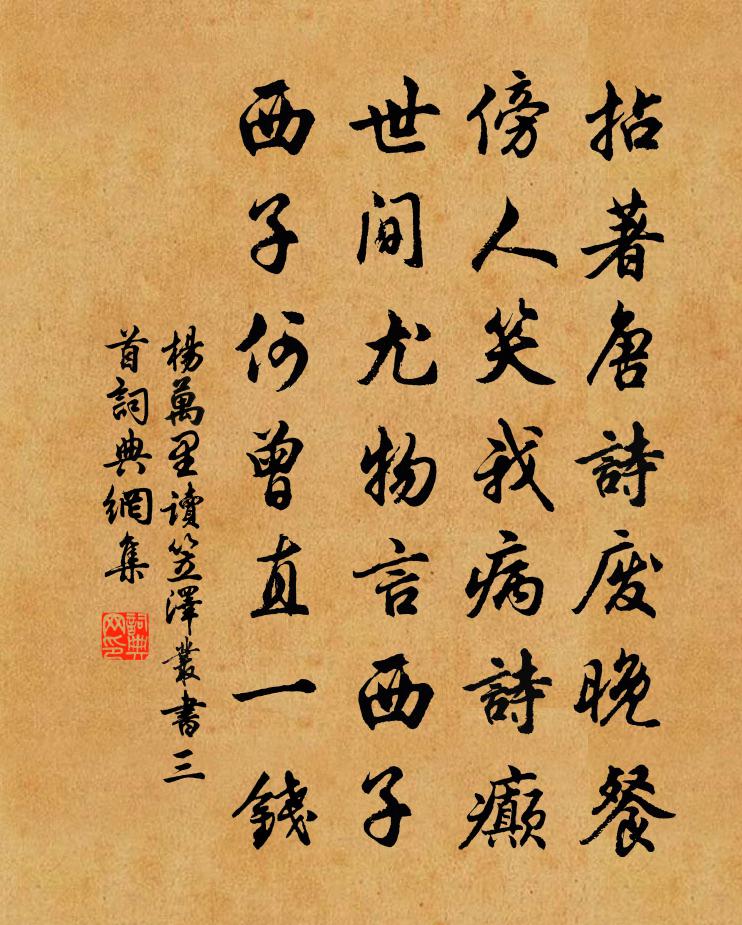 拈著唐詩废晚餐
傍人笑我病詩癲
世间尤物言西子
西子何曾直一錢
楊萬里讀笠澤叢書三
首詞典網集
詞典
网印